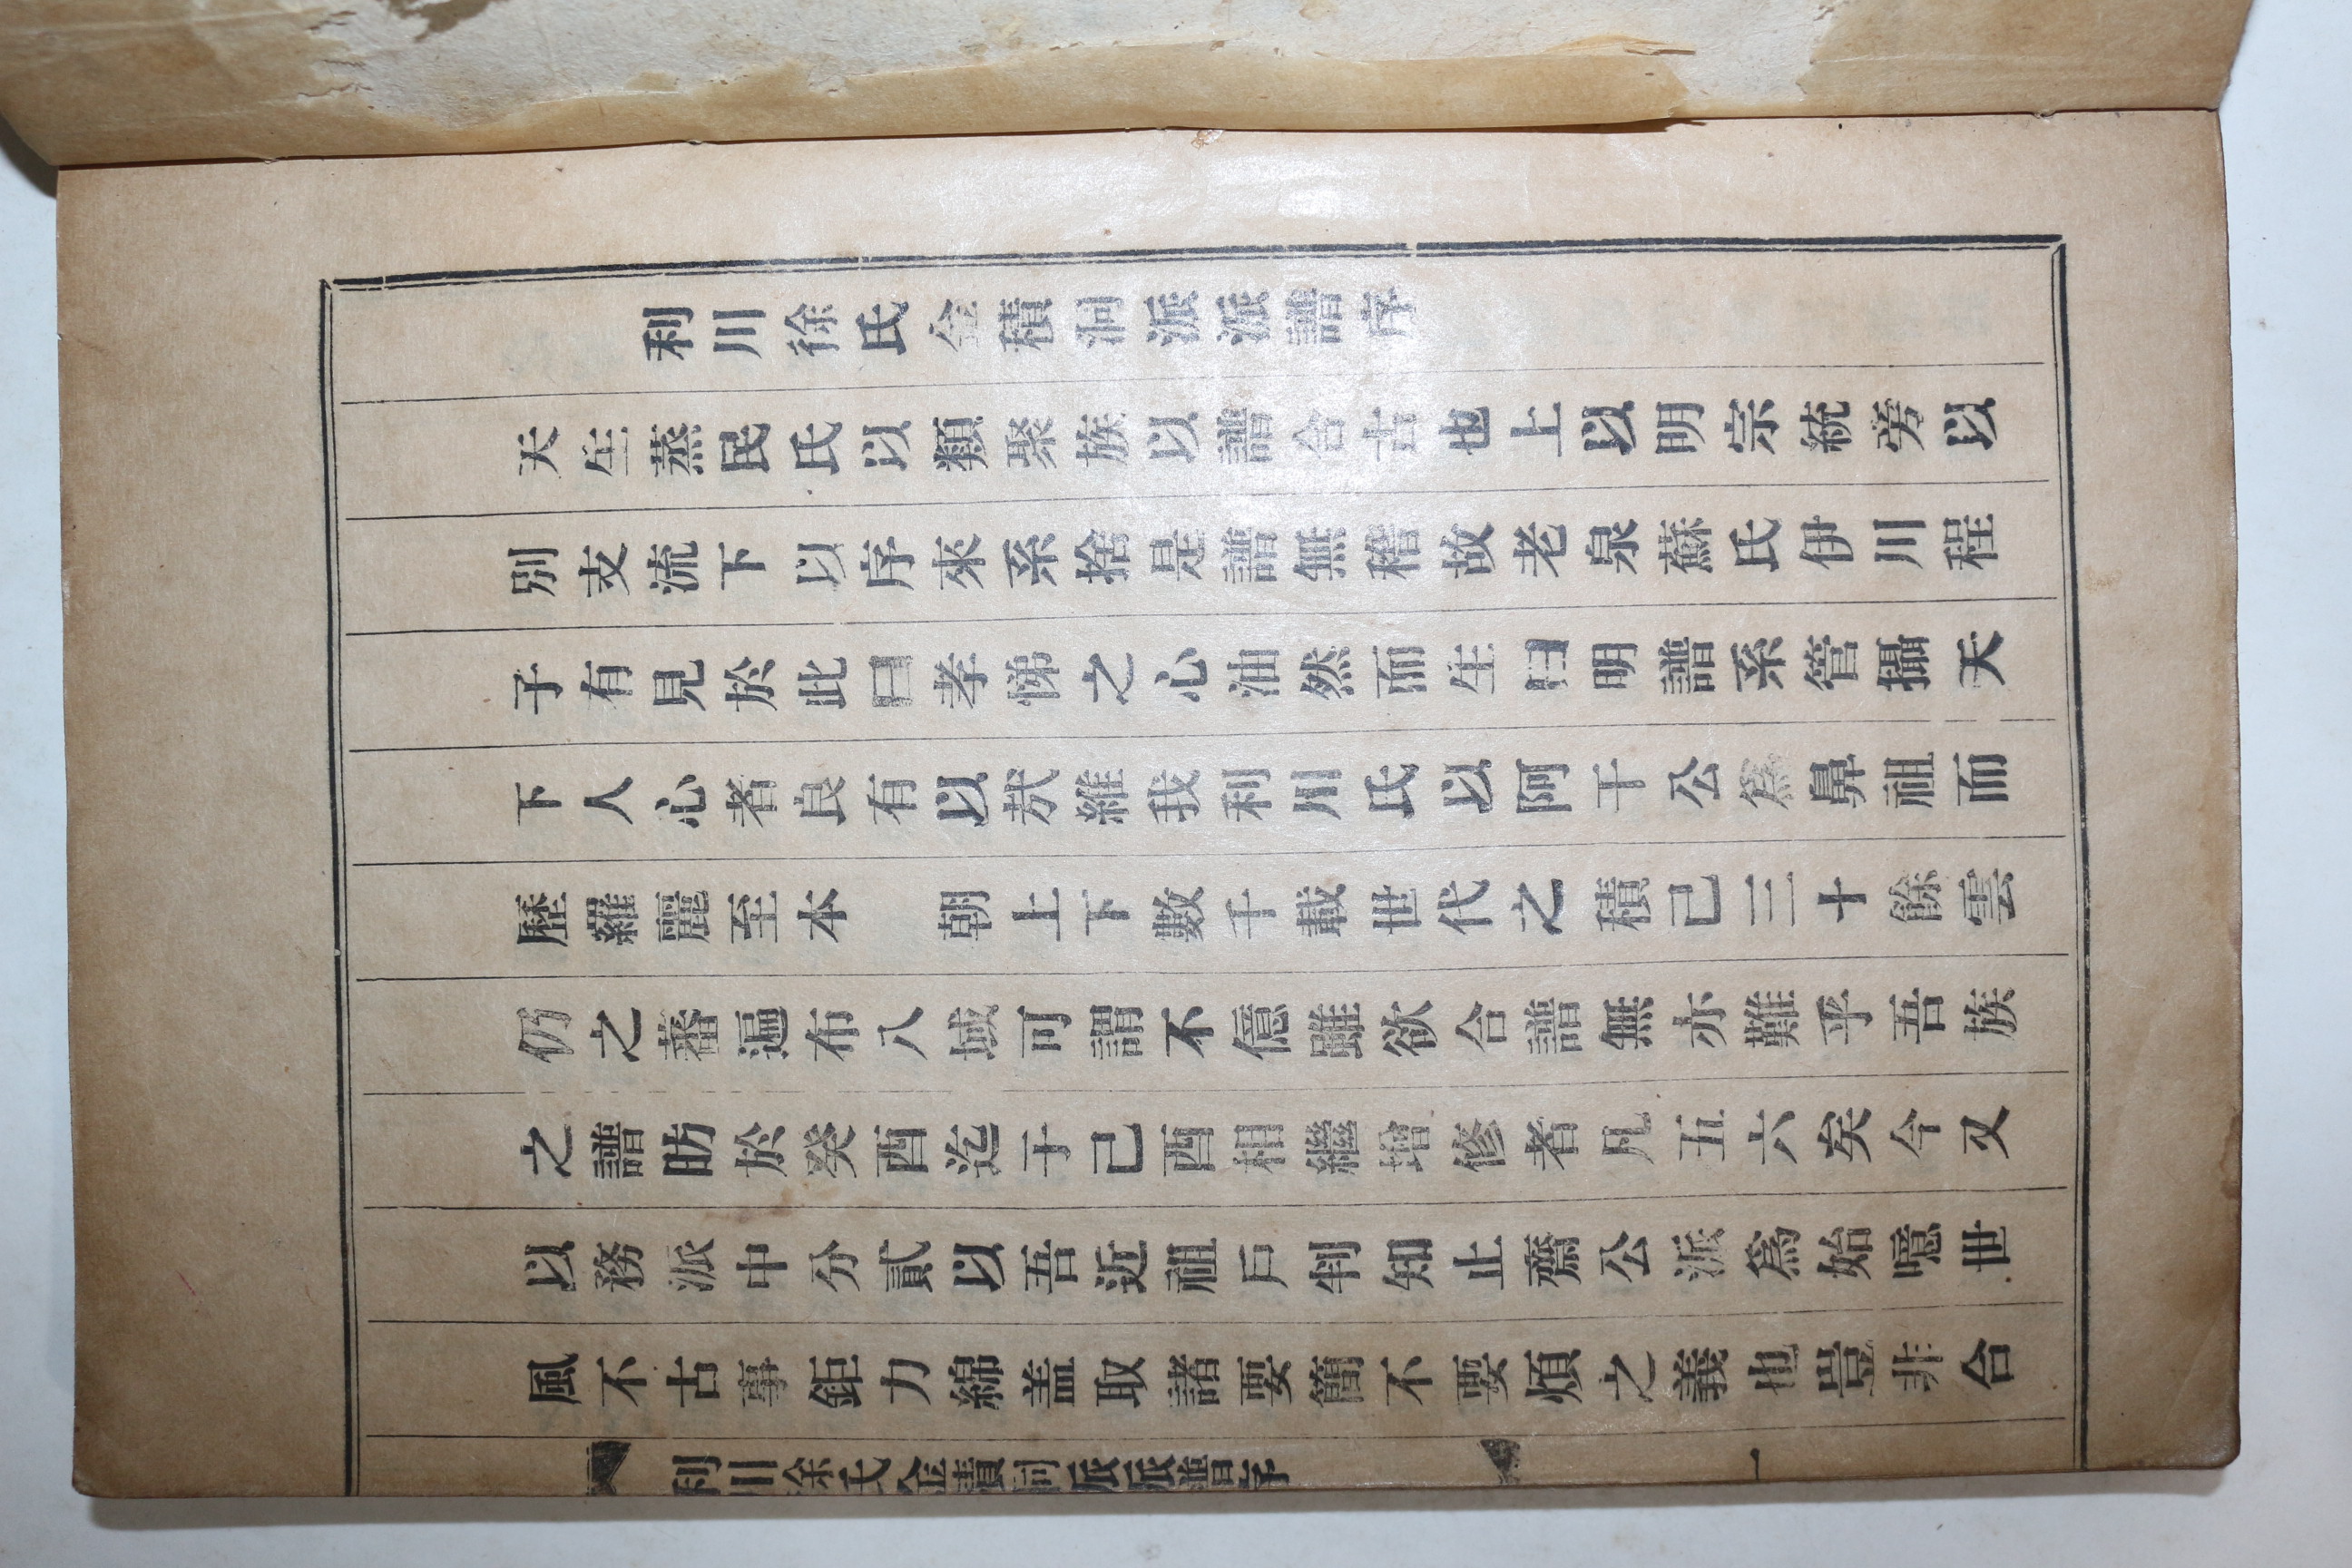 利川徐氏金積洞派派譜序
天生蒸民氏以類聚族以譜合古也上以明宗統旁以
別支流下以序來系捨是譜無稽故老泉蘇氏伊川程
子有見於此曰孝悌之心油然而生曰明譜系管攝天
下人心者良有以㢤維我利川氏以阿干公爲鼻祖而
歷羅麗至本　朝上下數千載世代之積己三十餘雲
仍之蕃遍布八域可謂不億雖欲合譜無亦難乎吾族
之譜昉於癸酉迄于己酉相繼增修者凡五六矣今又
以務派中分貳以吾近祖戶判知止齋公派爲始噫世
風不古事鉅力綿盖取諸要簡不要煩之義也豈非合
利川徐氏金積洞派派譜序
一